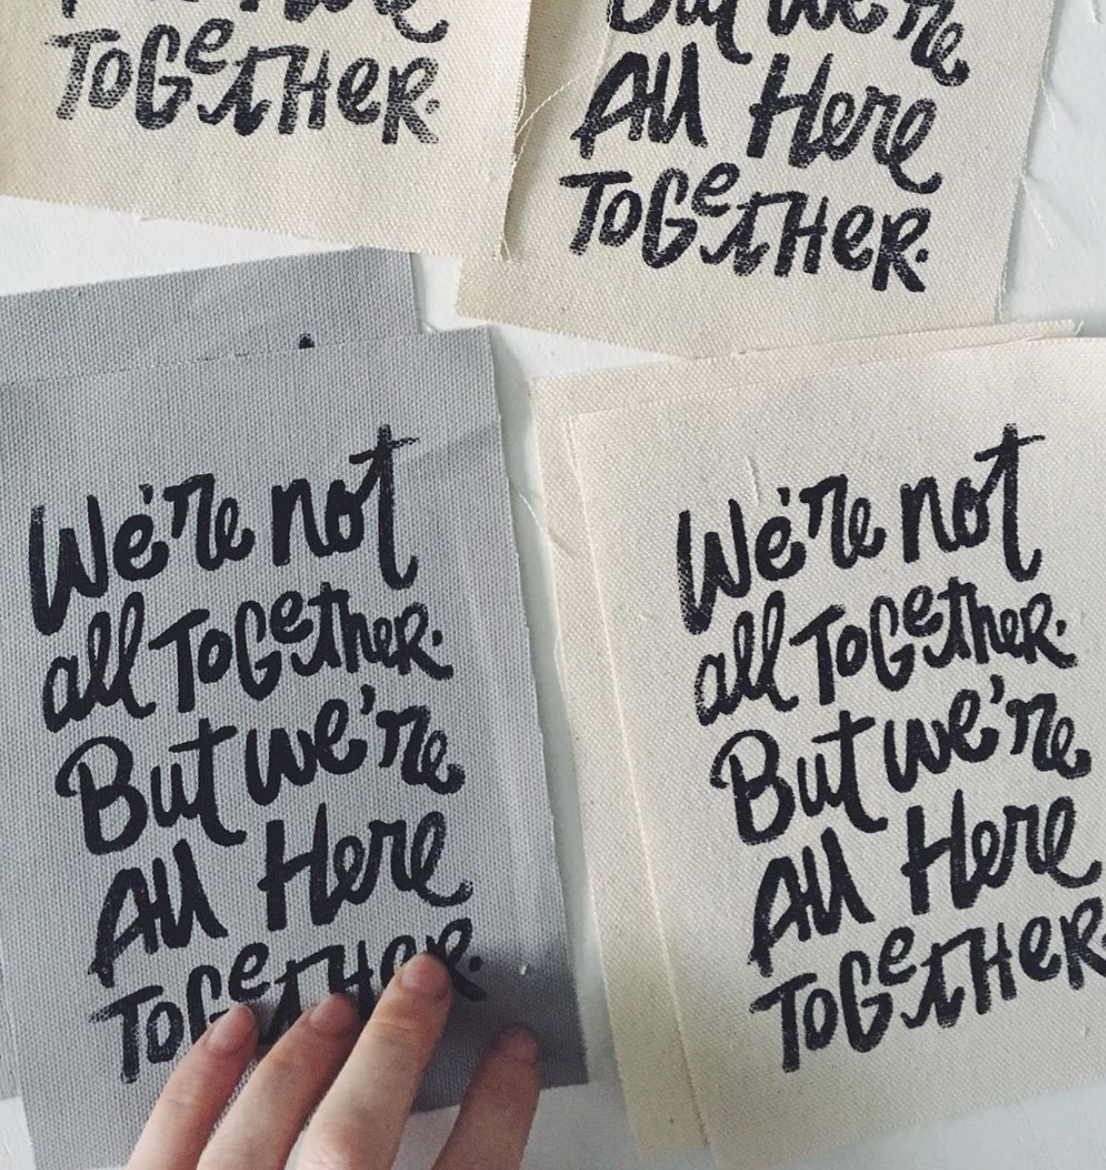 Here
TOGeTHeR.
But we're
All Here
TOGeTHeR.
We're not
all TOGeTheR.
But we're
All Here
TOGeTHeR.
We're not
all TOGeTheR.
But we're
All Here
TOGeTHeR.